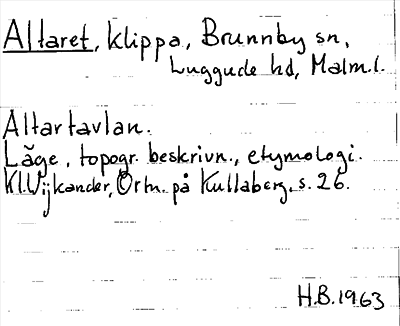 Altaret, klippa, Brunnby sn,
Luggude hd, Malm.l.
Altartavlan.
Läge, topogr. beskrivn., etymologi.
Kl.Vijkander, Ortn. på Kullaberg, s. 26.
H.B. 1963